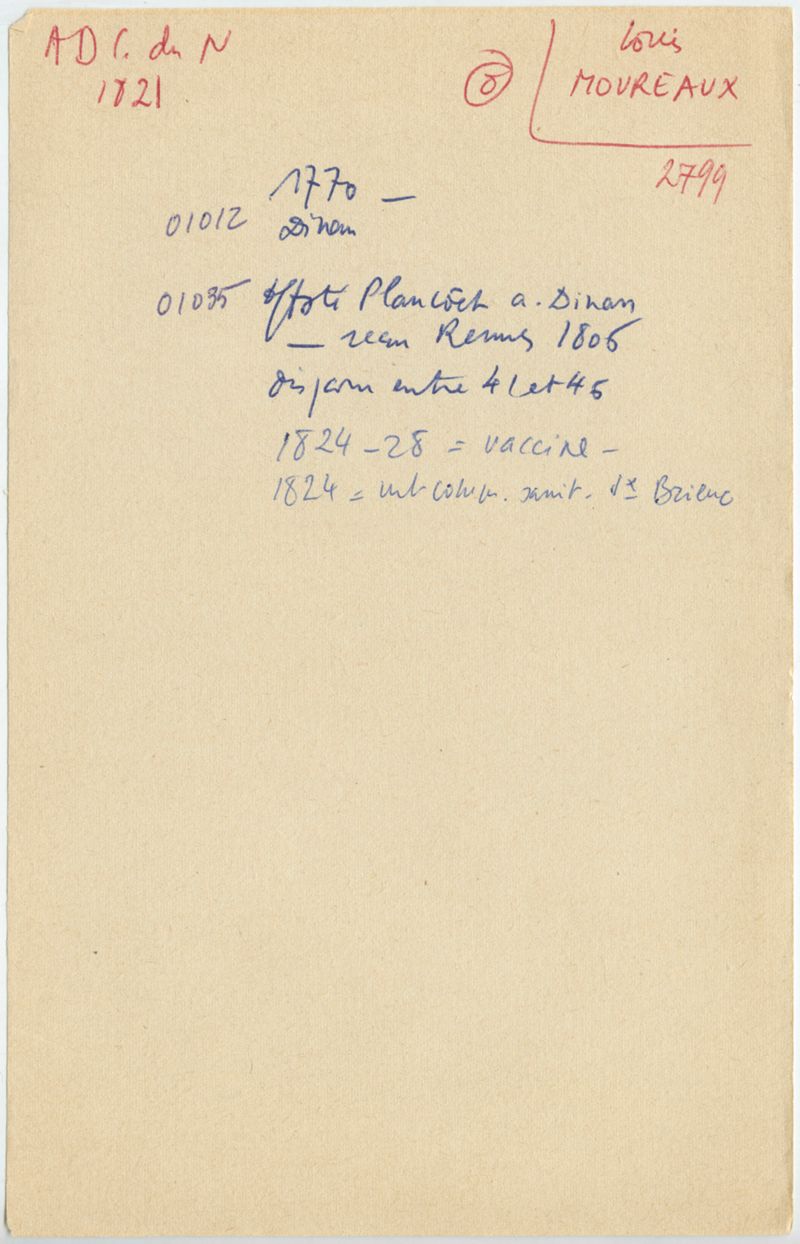 AD C. du N
1821
Louis
MOUREAUX
2799
1770 —
01012 Dinan
01035 Plancoët a. Dinan
— recu Rennes 1806
disparu entre 41 et 45
1824 – 28 = vaccine –
1824 = mb comm. sanit. St Brieuc